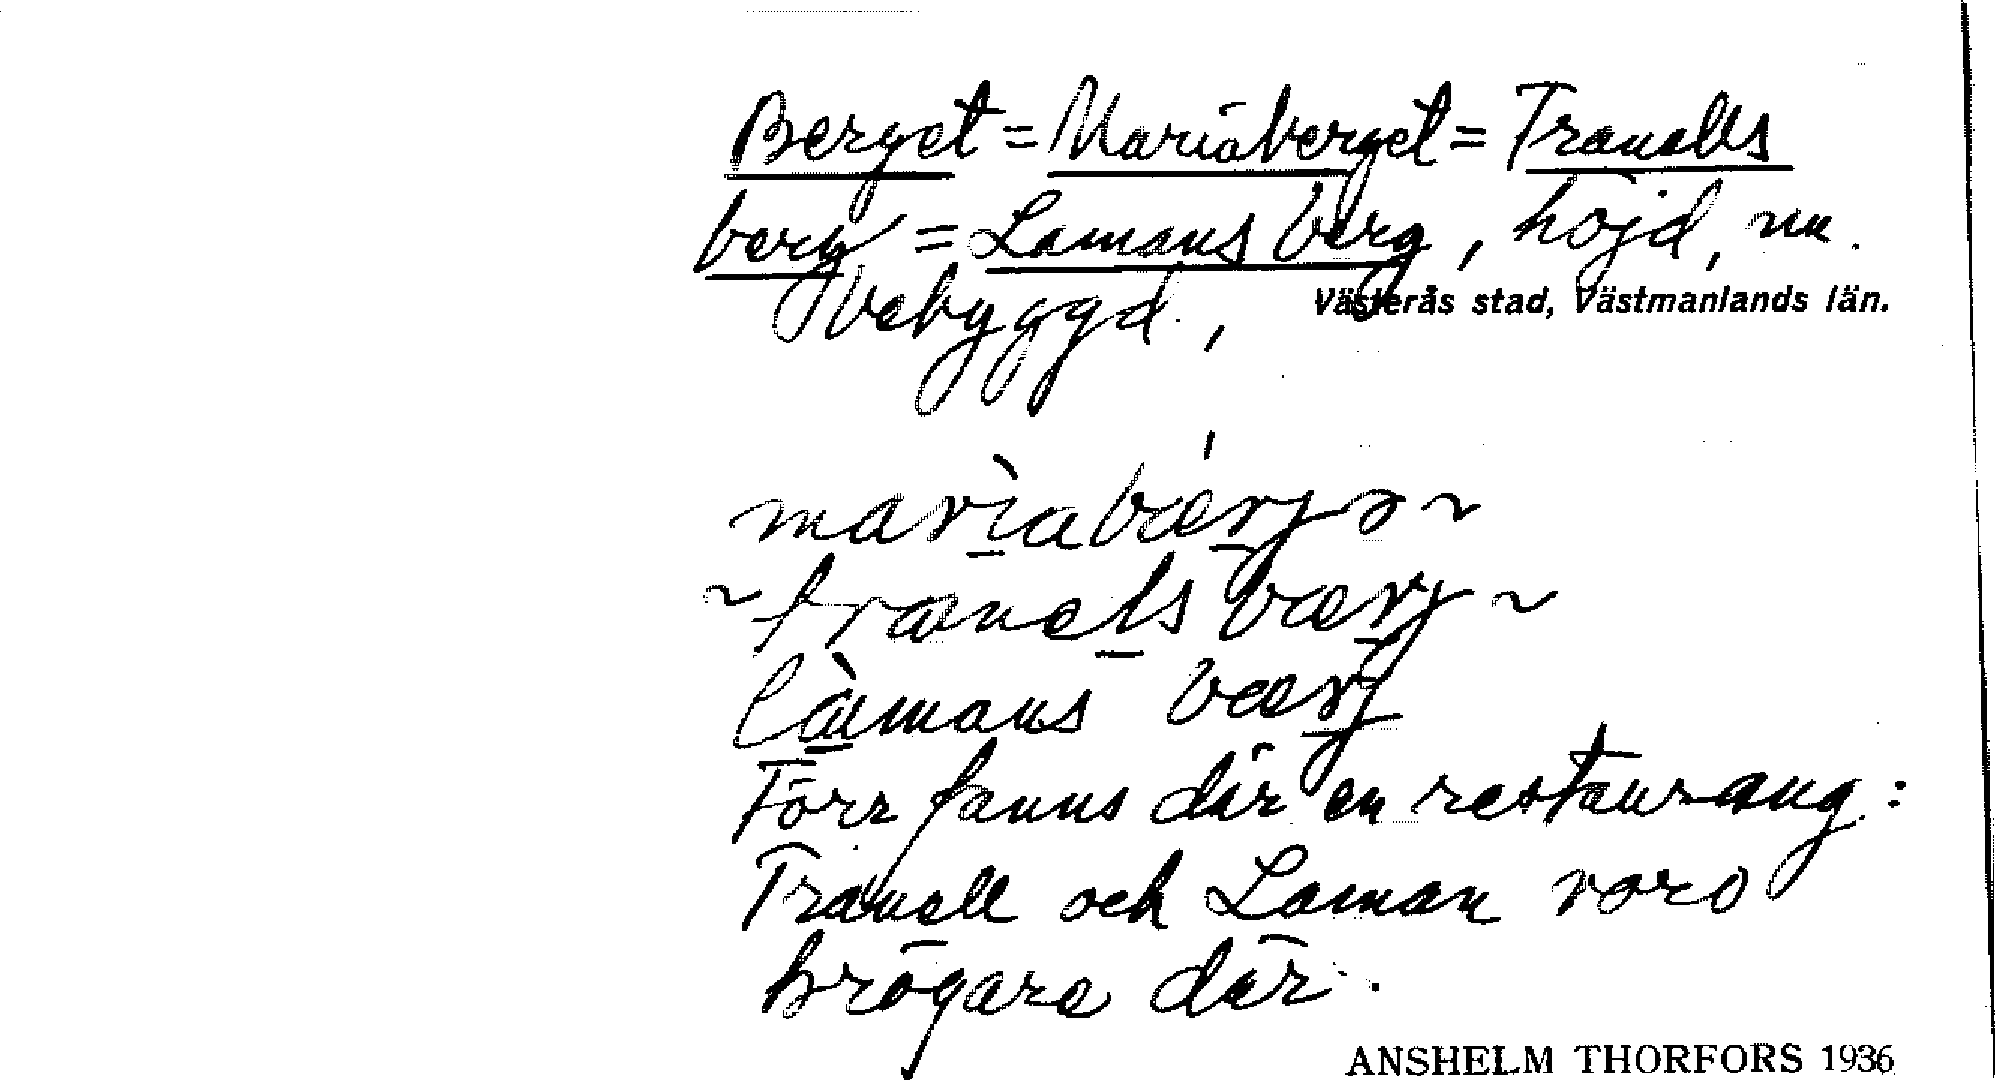 Berget = Mariaberget = Tranells
berg = Lamans berg, höjd, nu
bebyggd, Västerås stad, Västmanlands län.
marìabærjə ~
~ tranels bærj ~
làmans bærj
Förr fanns där en restaurang:
Tranell och Laman voro
krögare där.
ANSHELM THORFORS 1936